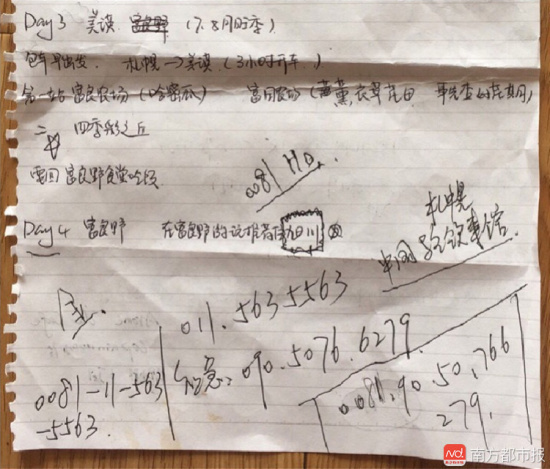 Day 3 美瑛 富良野 (7.8月旺季)
包车出发. 札幌→美瑛 (3小时开车.)
第一站 富良农场 (哈密瓜) 富田农场 (薰衣草花田 事先查好花期)
二 四季彩之丘
富良野
0081 Ho.
Day 4 富良野 在富良野的话推荐 旭川
札幌
中国 总领事馆.
011.5635563
090.5076.6279.
0081-11-563
-5563.
0081.90.50.766
279.
南方都市报